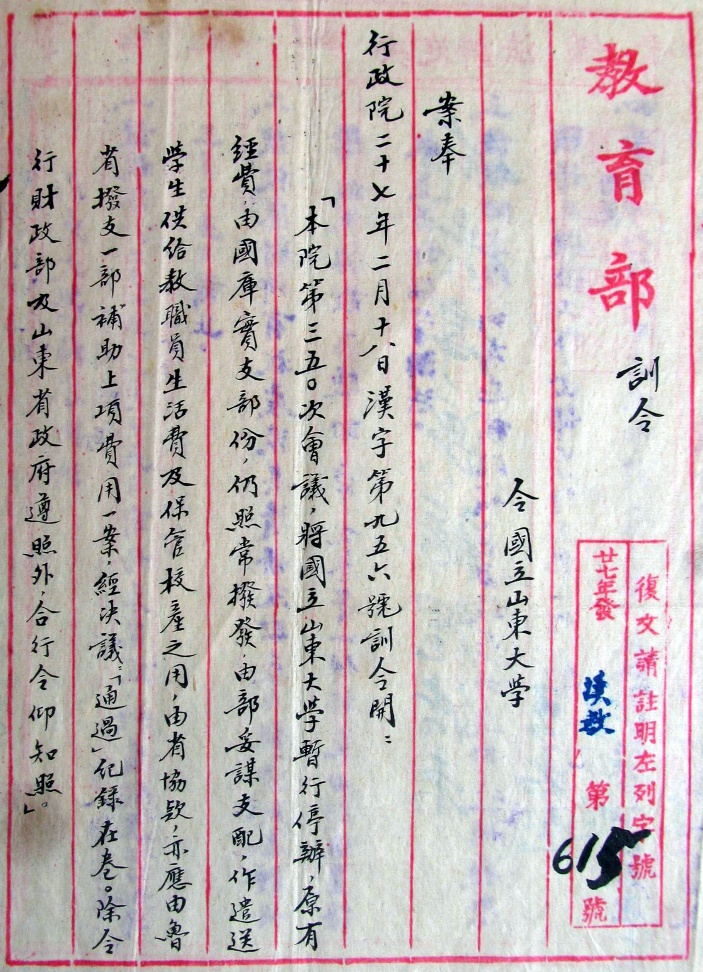 教育部 訓令
復文請註明左列字號
廿七年發 漢教 第 615 號
令國立山東大學
案奉
行政院二十七年二月十八日漢字第九五六號訓令開：
「本院第三五〇次會議，將國立山東大學暫行停辦，原有
經費，由國庫實支部份，仍照常撥發，由部妥謀支配，作遣送
學生供給教職員生活費及保管校產之用，由省協款，亦應由魯
省撥支一部補助上項費用一案，經決議：「通過」紀錄在卷。除令
行財政部及山東省政府遵照外，合行令仰知照。」